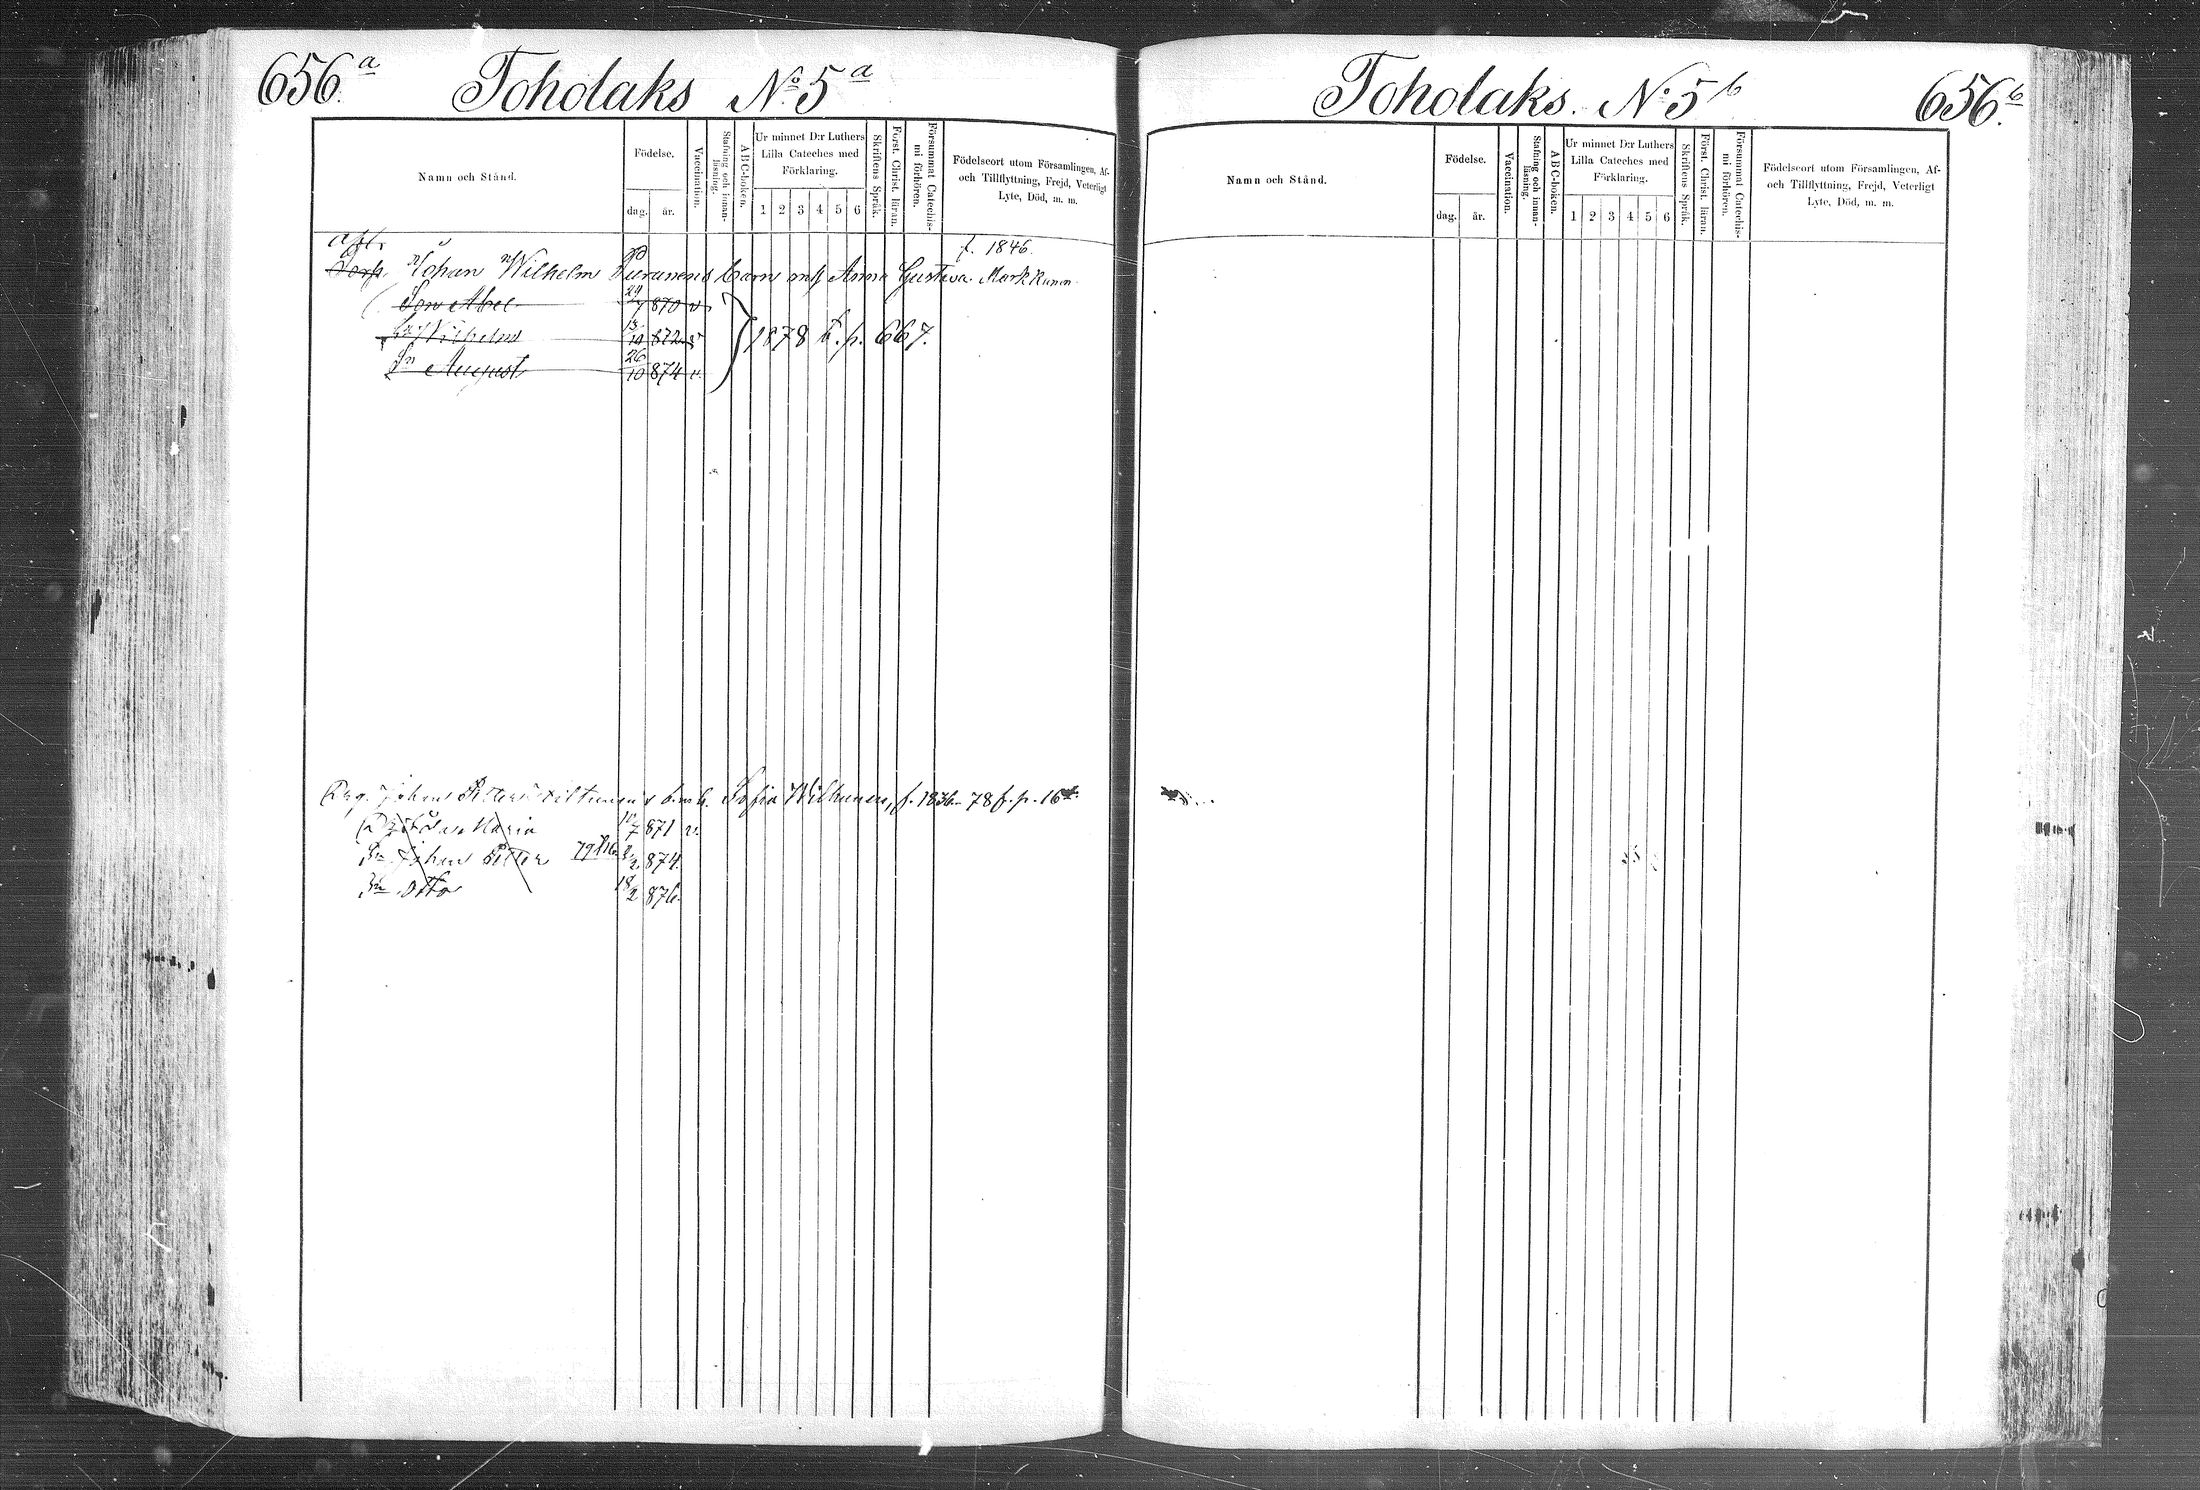 656.a Toholaks No 5a
Namn och Stånd.
Födelse.
dag. år.
Vaccination.
Stafning och innan-
läsning.
ABC-boken.
Ur minnet D:r Luthers
Lilla Cateches med
Förklaring.
1 2 3 4 5 6
Skriftens Språk.
Först. Christ. läran.
Försummat Catechis-
mi förhören.
Födelseort utom Församlingen, Af-
och Tillflyttning, Frejd, Veterligt
Lyte, Död, m. m.
f. 1846.
Johan Wilhelm Puranens barn m/ Anna Gustava Markkanen
Son Abel 24/7 870 v
Wilhelm 13/10 872
Sn August 26/10 874 v.
1878 t. p. 667.
Johan Petter Sofia Wilhunen, f. 1836 78 f. p. 16
Maria 10/7 871 v.
Sn Johan Petter 3/2 874.
Sn Otto 18/2 876.
Toholaks. No 5b 656.b
Namn och Stånd.
Födelse.
dag. år.
Vaccination.
Stafning och innan-
läsning.
ABC-boken.
Ur minnet D:r Luthers
Lilla Cateches med
Förklaring.
1 2 3 4 5 6
Skriftens Språk.
Först. Christ. läran.
Försummat Catechis-
mi förhören.
Födelseort utom Församlingen, Af-
och Tillflyttning, Frejd, Veterligt
Lyte, Död, m. m.